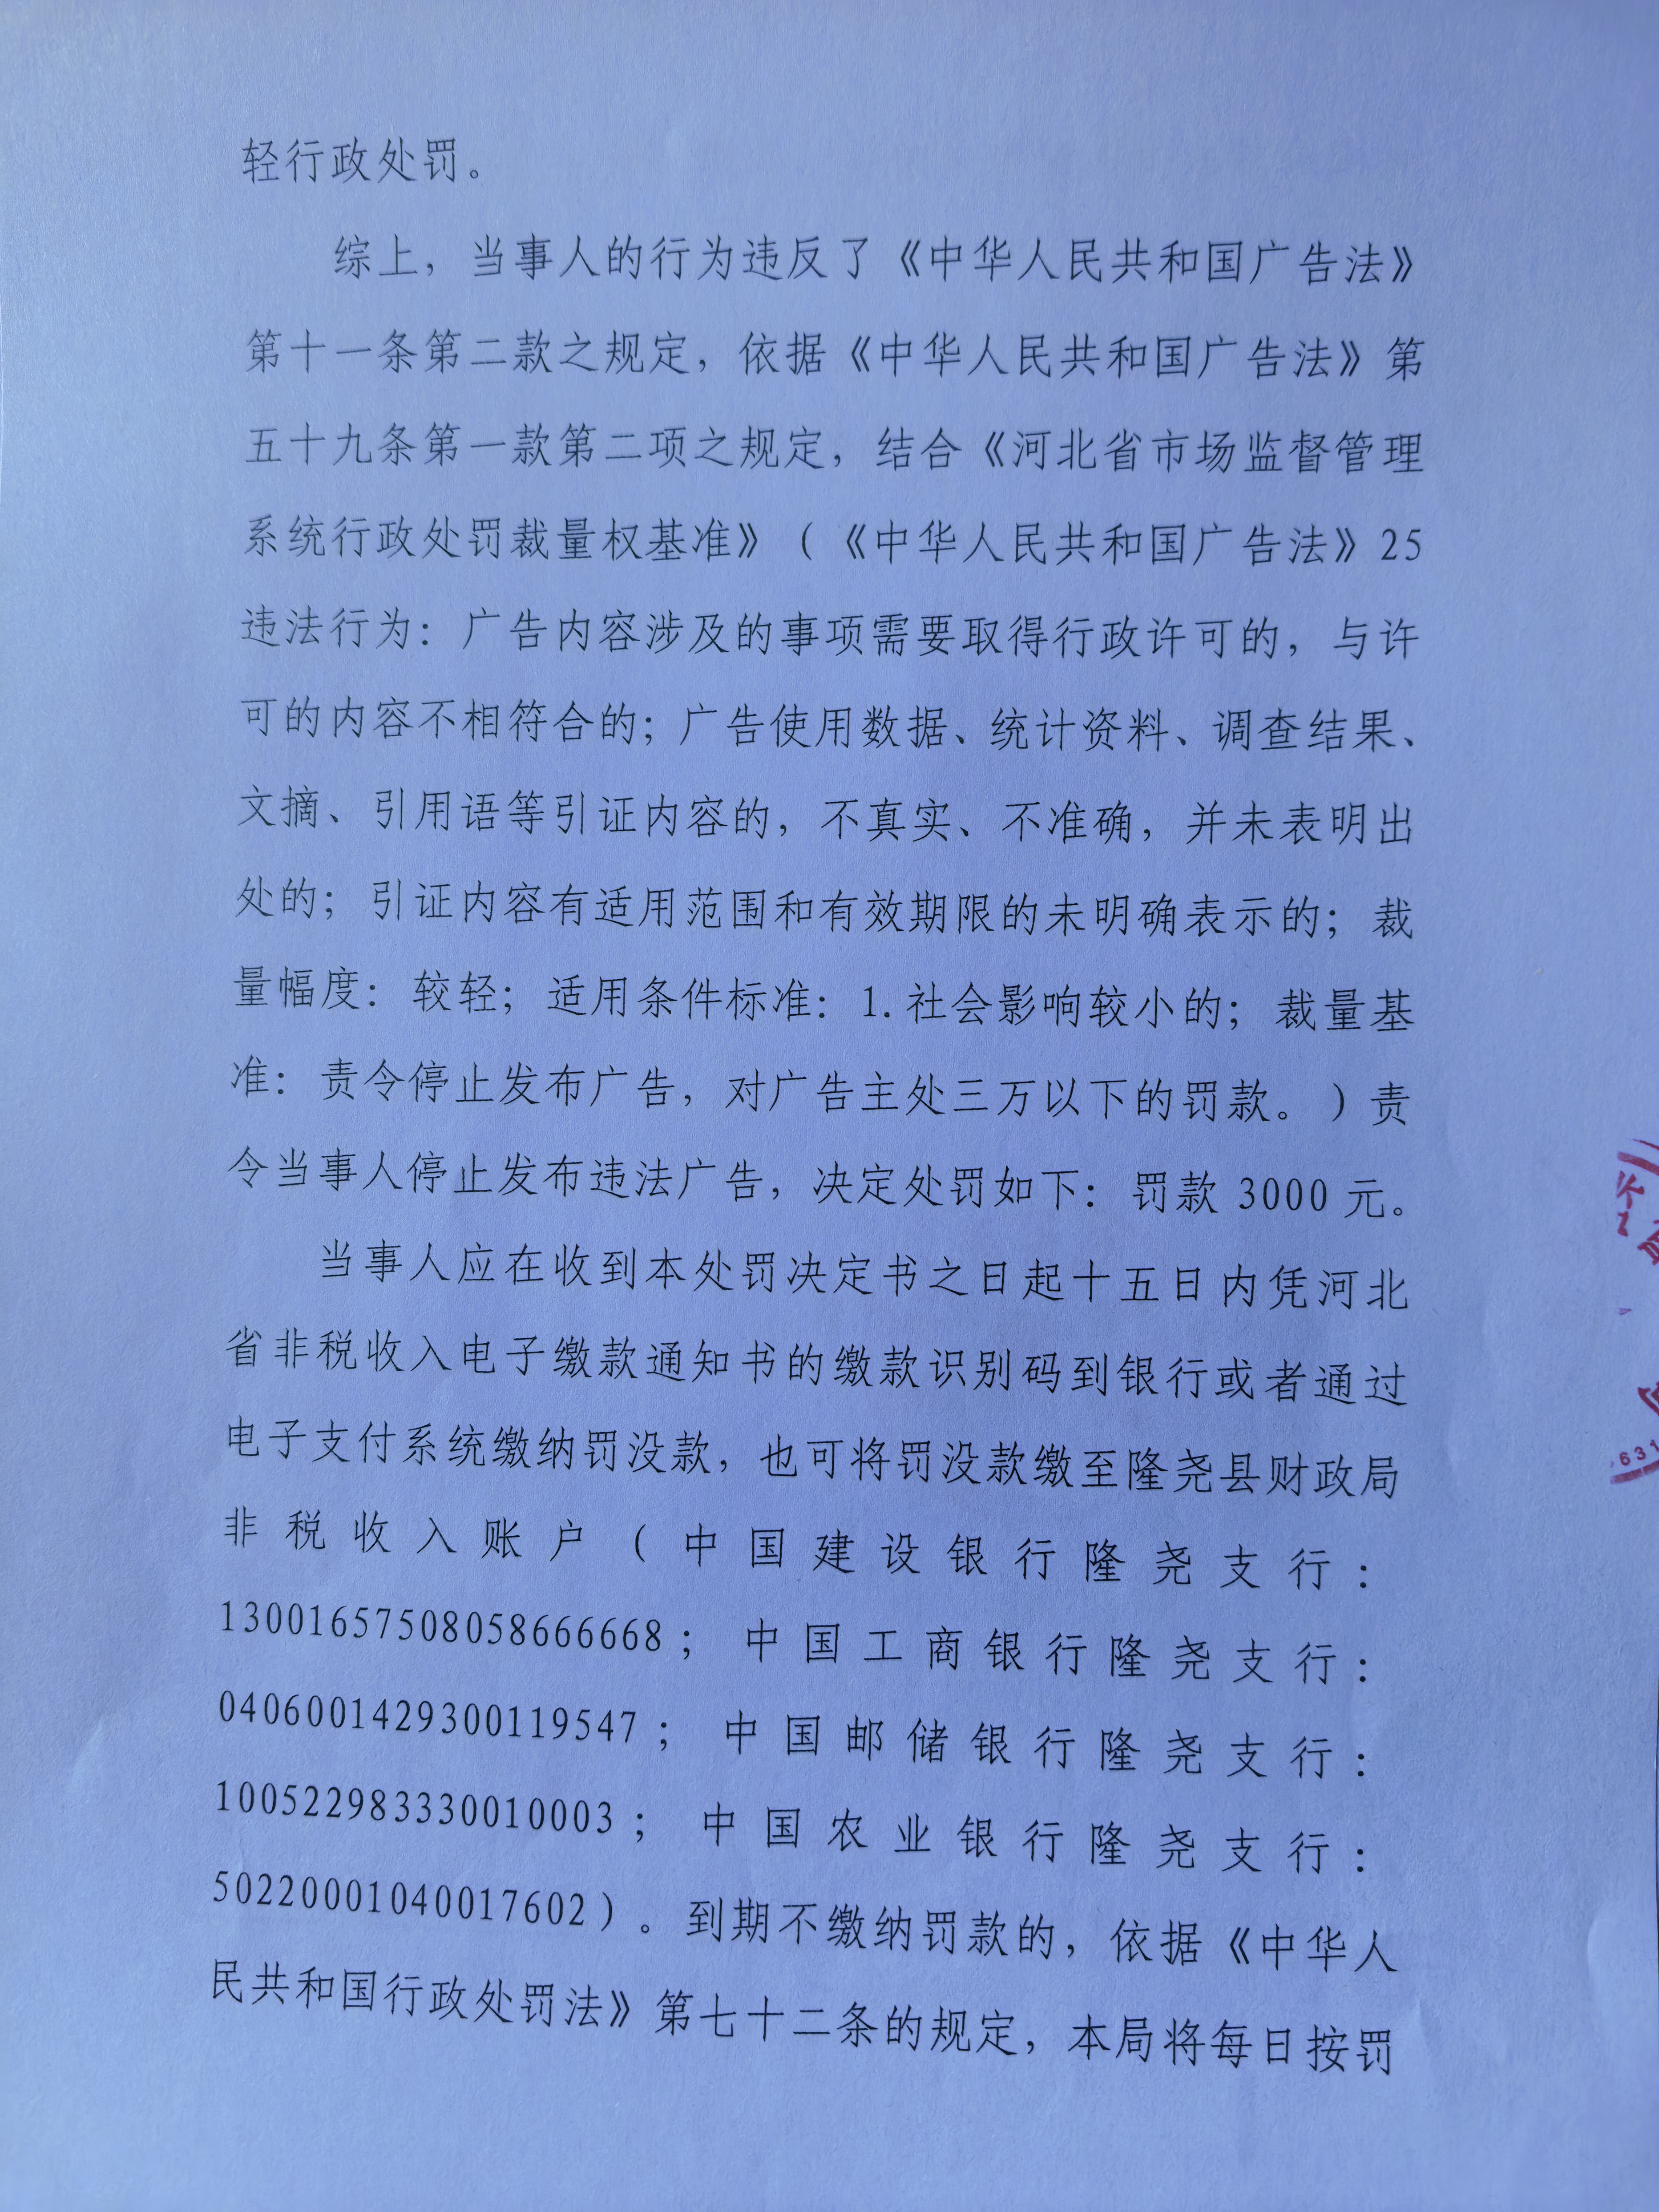 轻行政处罚。
综上，当事人的行为违反了《中华人民共和国广告法》
第十一条第二款之规定，依据《中华人民共和国广告法》第
五十九条第一款第二项之规定，结合《河北省市场监督管理
系统行政处罚裁量权基准》（《中华人民共和国广告法》25
违法行为：广告内容涉及的事项需要取得行政许可的，与许
可的内容不相符合的；广告使用数据、统计资料、调查结果、
文摘、引用语等引证内容的，不真实、不准确，并未表明出
处的；引证内容有适用范围和有效期限的未明确表示的；裁
量幅度：较轻；适用条件标准：1.社会影响较小的；裁量基
准：责令停止发布广告，对广告主处三万以下的罚款。）责
令当事人停止发布违法广告，决定处罚如下：罚款 3000 元。
当事人应在收到本处罚决定书之日起十五日内凭河北
省非税收入电子缴款通知书的缴款识别码到银行或者通过
电子支付系统缴纳罚没款，也可将罚没款缴至隆尧县财政局
非税收入账户（中国建设银行隆尧支行：
13001657508058666668；中国工商银行隆尧支行：
0406001429300119547；中国邮储银行隆尧支行：
100522983330010003；中国农业银行隆尧支行：
50220001040017602）。到期不缴纳罚款的，依据《中华人
民共和国行政处罚法》第七十二条的规定，本局将每日按罚
631